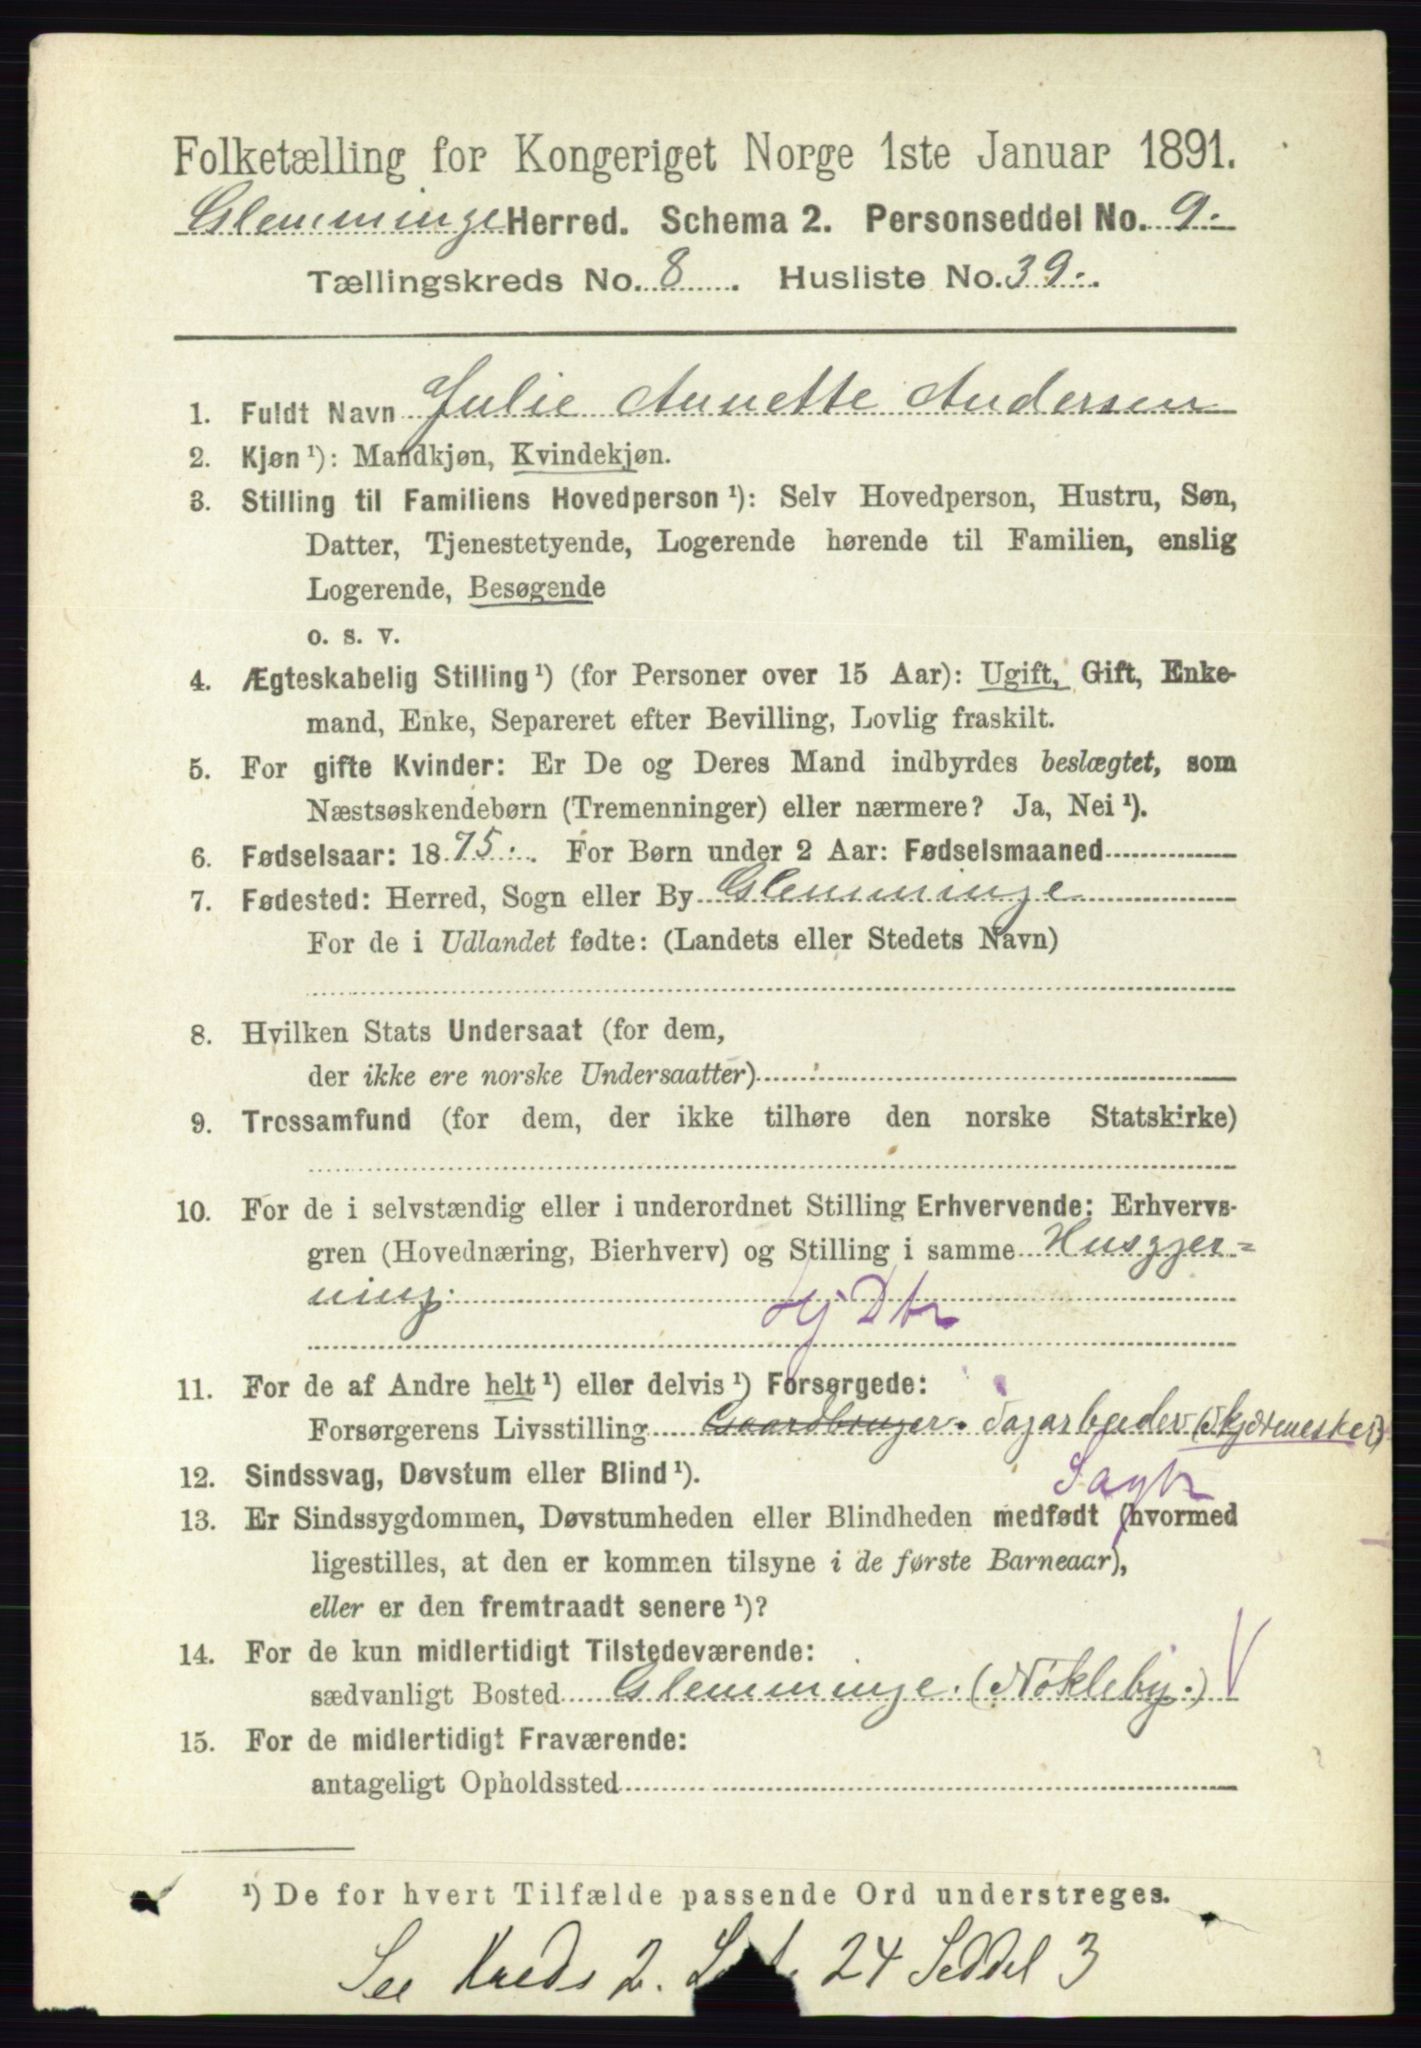 Folketælling for Kongeriget Norge 1ste Januar 1891.
Glemminge Herred. Schema 2. Personseddel No. 9.
Tællingskreds No. 8. Husliste No. 39.
1. Fuldt Navn Julie Annette Andersen
2. Kjøn ¹): Mandkjøn, Kvindekjøn.
3. Stilling til Familiens Hovedperson ¹): Selv Hovedperson, Hustru, Søn,
Datter, Tjenestetyende, Logerende hørende til Familien, enslig
Logerende, Besøgende
o. s. v.
4. Ægteskabelig Stilling ¹) (for Personer over 15 Aar): Ugift, Gift, Enke-
mand, Enke, Separeret efter Bevilling, Lovlig fraskilt.
5. For gifte Kvinder: Er De og Deres Mand indbyrdes beslægtet, som
Næstsøskendebørn (Tremenninger) eller nærmere? Ja, Nei ¹).
6. Fødselsaar: 1875. For Børn under 2 Aar: Fødselsmaaned
7. Fødested: Herred, Sogn eller By Glemminge
For de i Udlandet fødte: (Landets eller Stedets Navn)
8. Hvilken Stats Undersaat (for dem,
der ikke ere norske Undersaatter)
9. Trossamfund (for dem, der ikke tilhøre den norske Statskirke)
10. For de i selvstændig eller i underordnet Stilling Erhvervende: Erhvervs-
gren (Hovednæring, Bierhverv) og Stilling i samme Husgjer=
ning.
Hj Dtr
11. For de af Andre helt ¹) eller delvis ¹) Forsørgede:
Forsørgerens Livsstilling Gaardbruger. Dagarbeider
12. Sindssvag, Døvstum eller Blind ¹).
13. Er Sindssygdommen, Døvstumheden eller Blindheden medfødt (hvormed
ligestilles, at den er kommen tilsyne i de første Barneaar),
eller er den fremtraadt senere ¹)?
14. For de kun midlertidigt Tilstedeværende:
sædvanligt Bosted Glemminge. (Nökleby.) V
15. For de midlertidigt Fraværende:
antageligt Opholdssted
¹) De for hvert Tilfælde passende Ord understreges.
See Kreds 2. 24 Seddel 3